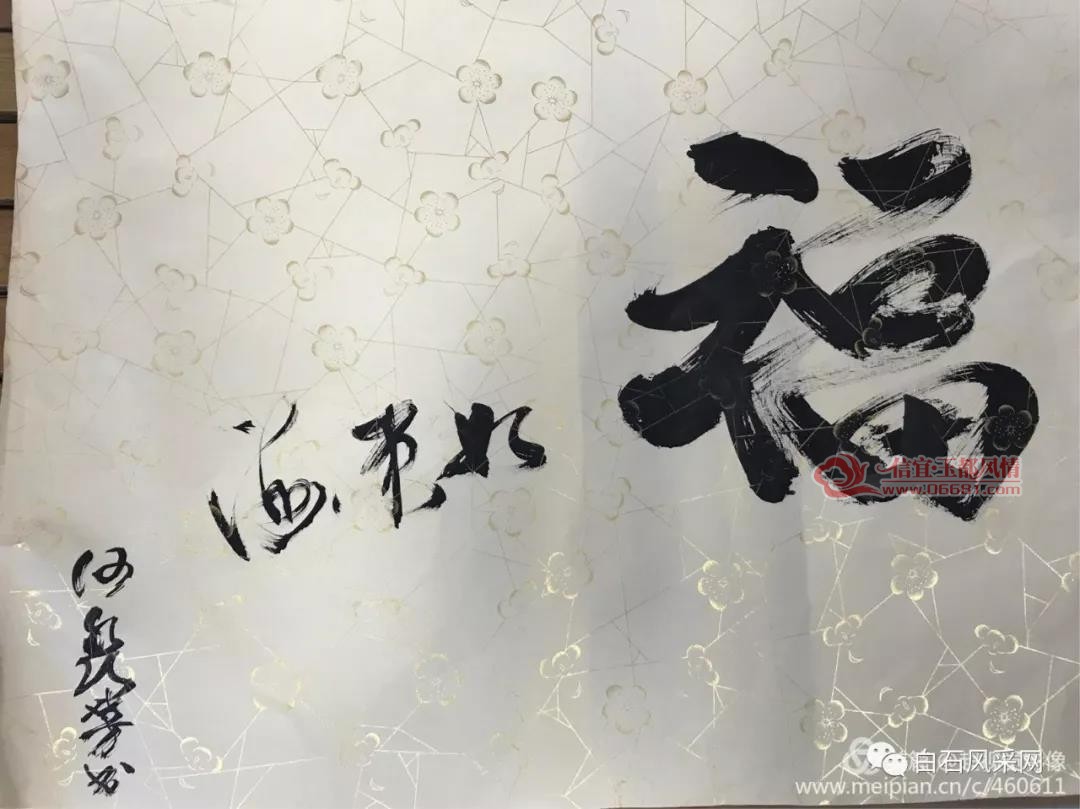 福
如东海
何
书
信宜·玉都风情
www.06681.com
白石风采网
www.meipian.cn/c/460611